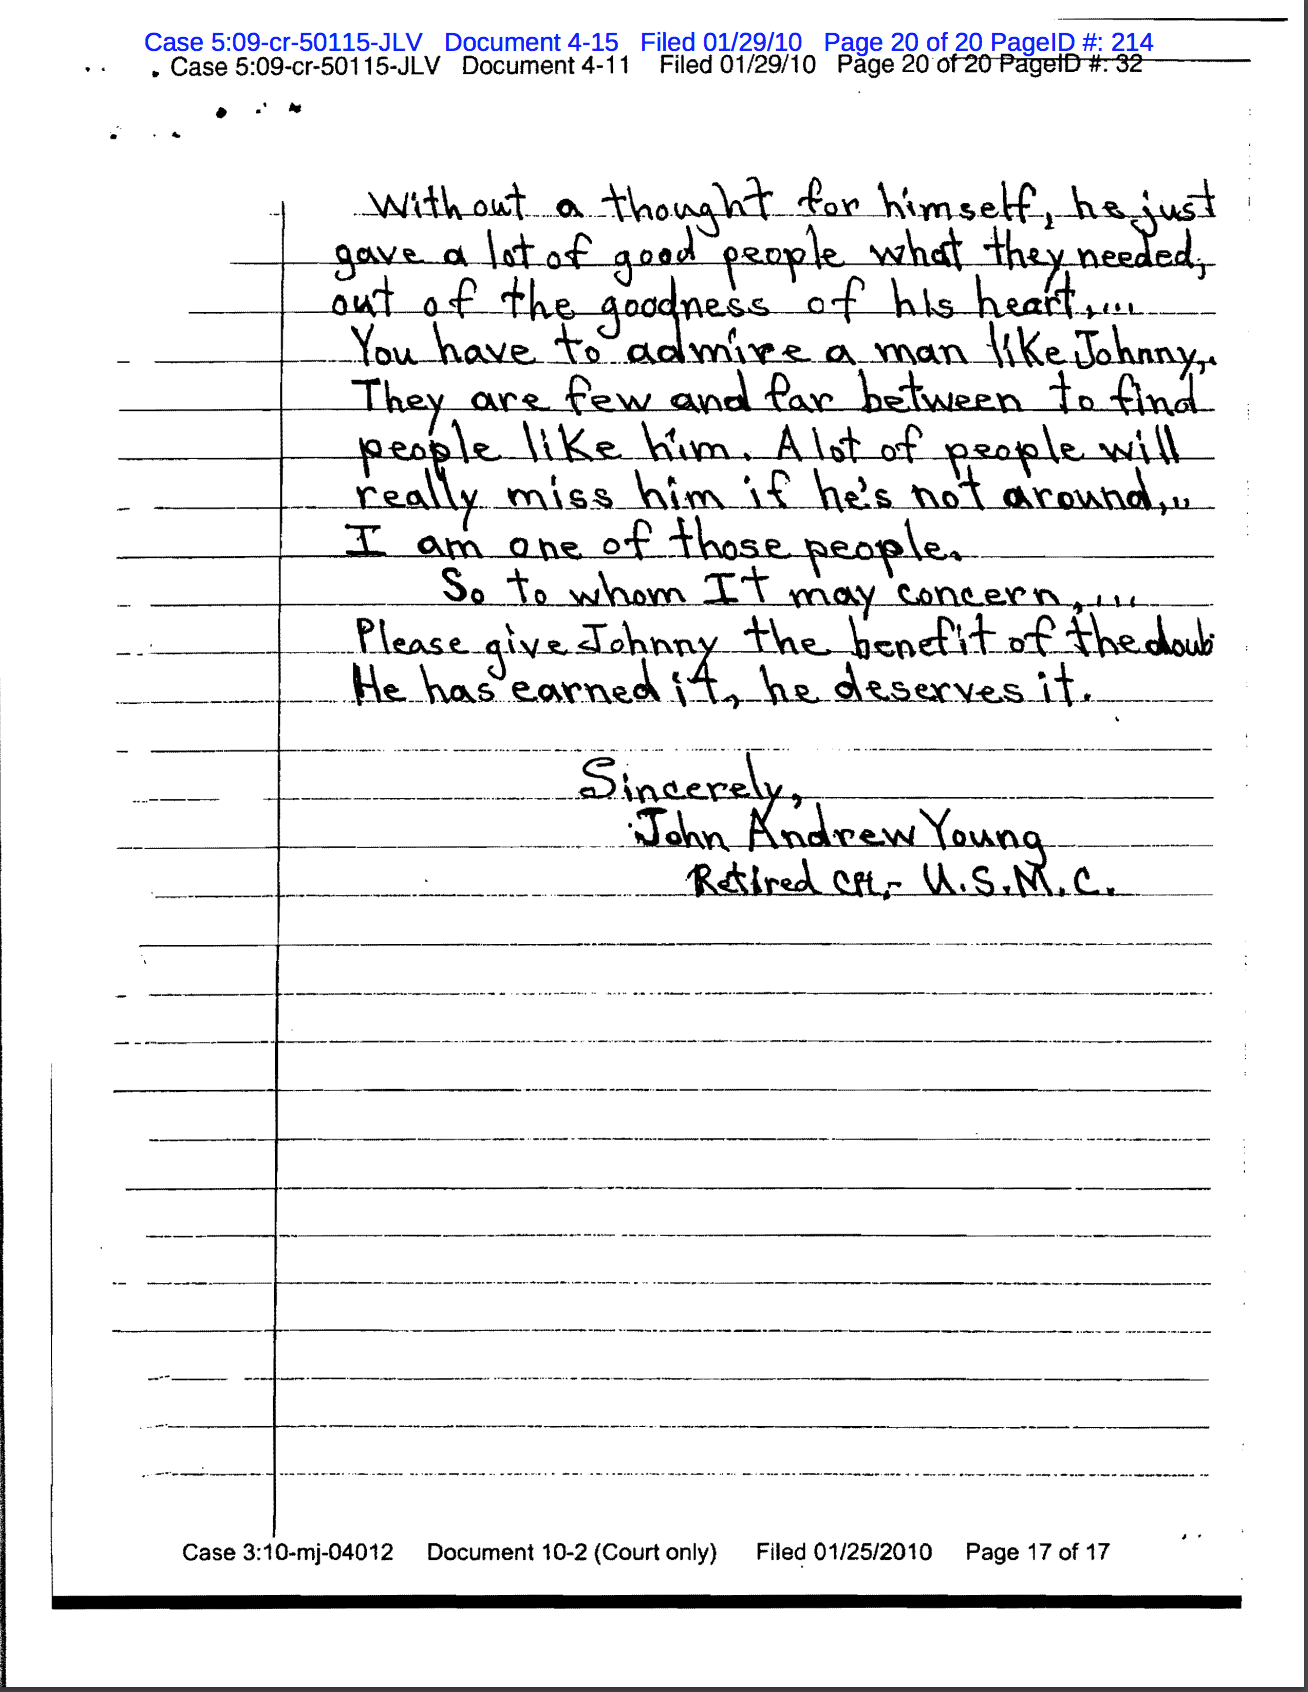 Case 5:09-cr-50115-JLV Document 4-15 Filed 01/29/10 Page 20 of 20 PageID #: 214
Case 5:09-cr-50115-JLV Document 4-11 Filed 01/29/10 Page 20 of 20 PageID #: 32
Without a thought for himself, he just
gave a lot of good people what they needed,
out of the goodness of his heart,...
You have to admire a man like Johnny,.
They are few and far between to find
people like him. A lot of people will
really miss him if he's not around,..
I am one of those people.
So to whom It may concern,...
Please give Johnny the benefit of the doub
He has earned it, he deserves it.
Sincerely,
John Andrew Young
Retired U.S.M.C.
Case 3:10-mj-04012 Document 10-2 (Court only) Filed 01/25/2010 Page 17 of 17